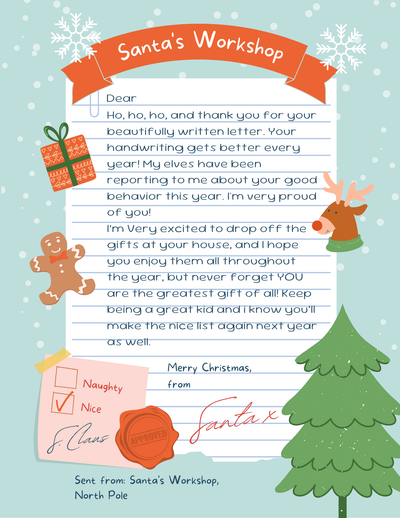 Santa's Workshop
Dear
Ho, ho, ho, and thank you for your
beautifully written letter. Your
handwriting gets better every
year! My elves have been
reporting to me about your good
behavior this year. I'm very proud
of you!
I'm Very excited to drop off the
gifts at your house, and I hope
you enjoy them all throughout
the year, but never forget YOU
are the greatest gift of all! Keep
being a great kid and i know you'll
make the nice list again next year
as well.
Merry Christmas,
from
Santa x
Naughty
Nice
S. Claus
APPROVED
Sent from: Santa's Workshop,
North Pole